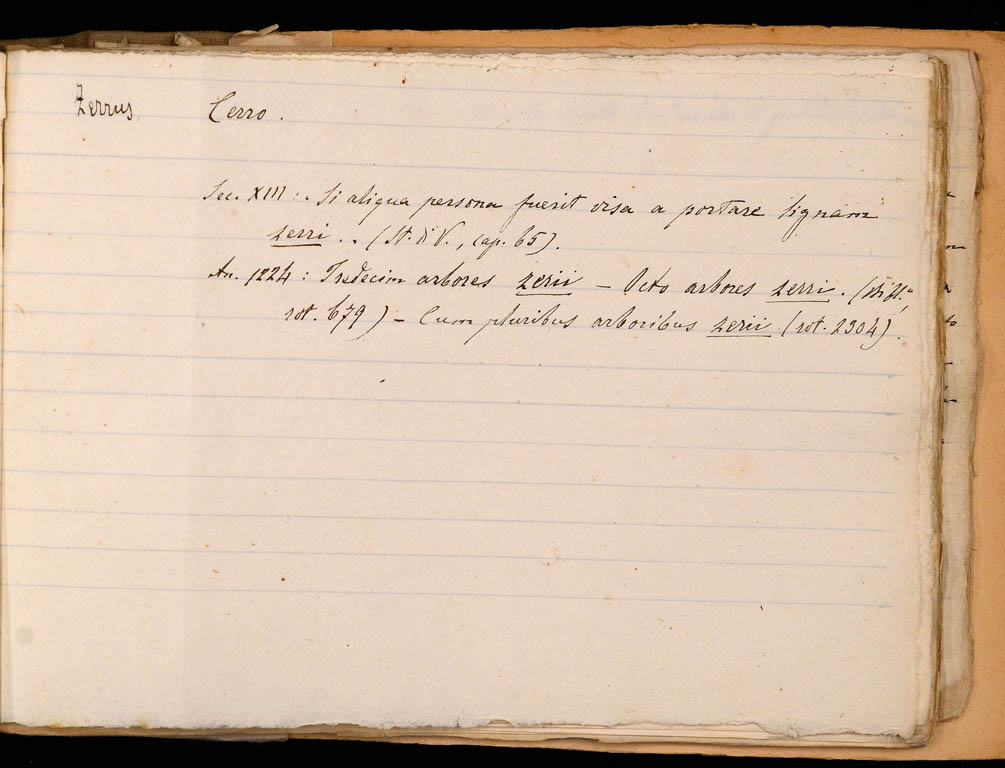 Zerrus, Cerro.
Sec. XIII: Si aliqua persona fuerit visa a portare lignam
zerri .. (St. di V., cap. 65).
An. 1224: Tredecim arbores zerii – Octo arbores zerri. (
rot. 679) – Cum pluribus arboribus zerii (rot. 2304).